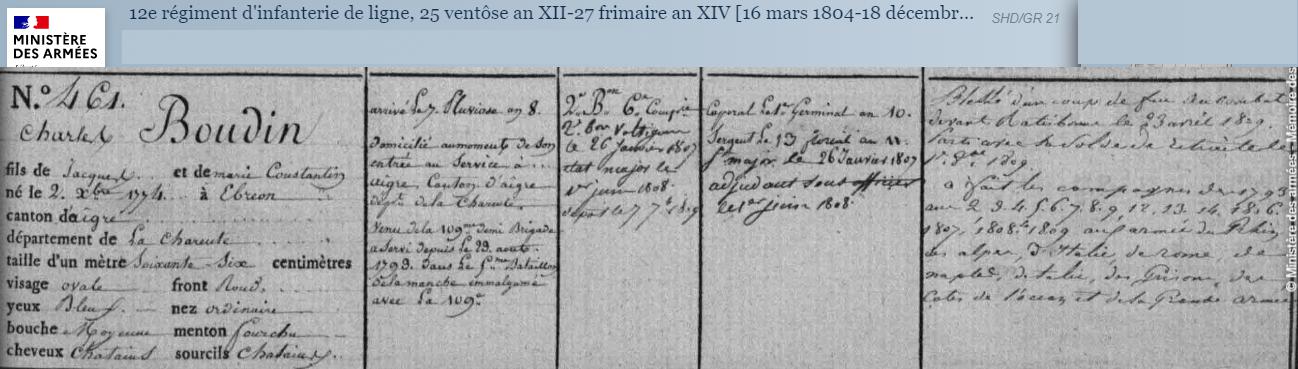 12e régiment d'infanterie de ligne, 25 ventôse an XII-27 frimaire an XIV [16 mars 1804-18 décembr...
SHD/GR 21
MINISTÈRE
DES ARMÉES
N.º 461.
Charles Boudin
fils de Jacques et de marie Constantin
né le 2. Xbre 1774 à Ebreon
canton daigre
département de La Charente
taille d'un mètre Soixante-Six centimètres
visage ovale front Rond
yeux Bleus nez ordinaire
bouche Moyenne menton fourchu
cheveux Chatains sourcils Chatains
arrivé Le 7. Pluviose an 8.
Domicilié au moment de Son
entrée au Service à
aigre, Canton d'aigre
dépt. de la Charente.
Venu de la 109me demi Brigade
a Servi depuis Le 23. aout
1793. dans Le Bataillon
de la manche emmalgamé
avec La 109e
2me Bon 6e Compie
2e bon Voltigeurs
le 26 Janvier 1807
état major le
1er juin 1808
depot le 7 7bre 1809
Caporal Le 1er Germinal an 10.
Sergent Le 13 floréal an 11.
St major le 26 Janvier 1807
adjudant sous officier
le 1er juin 1808
Blessé d'un coup de feu au combat
devant Ratisbonne le 23 avril 1809.
Parti avec la Solde de retraite le
1er 1809
a fait les campagnes de 1793
ans 2. 3. 4. 5. 6. 7. 8. 9. 12. 13. 14. 1806.
1807. 1808. 1809 aux armées du Rhin
des alpes, d'Italie, de rome, de
naples, d'italie, des Grisons, des
Cotes de l'ocean et de la Grande armée
© Ministère des armées - Mémoire des